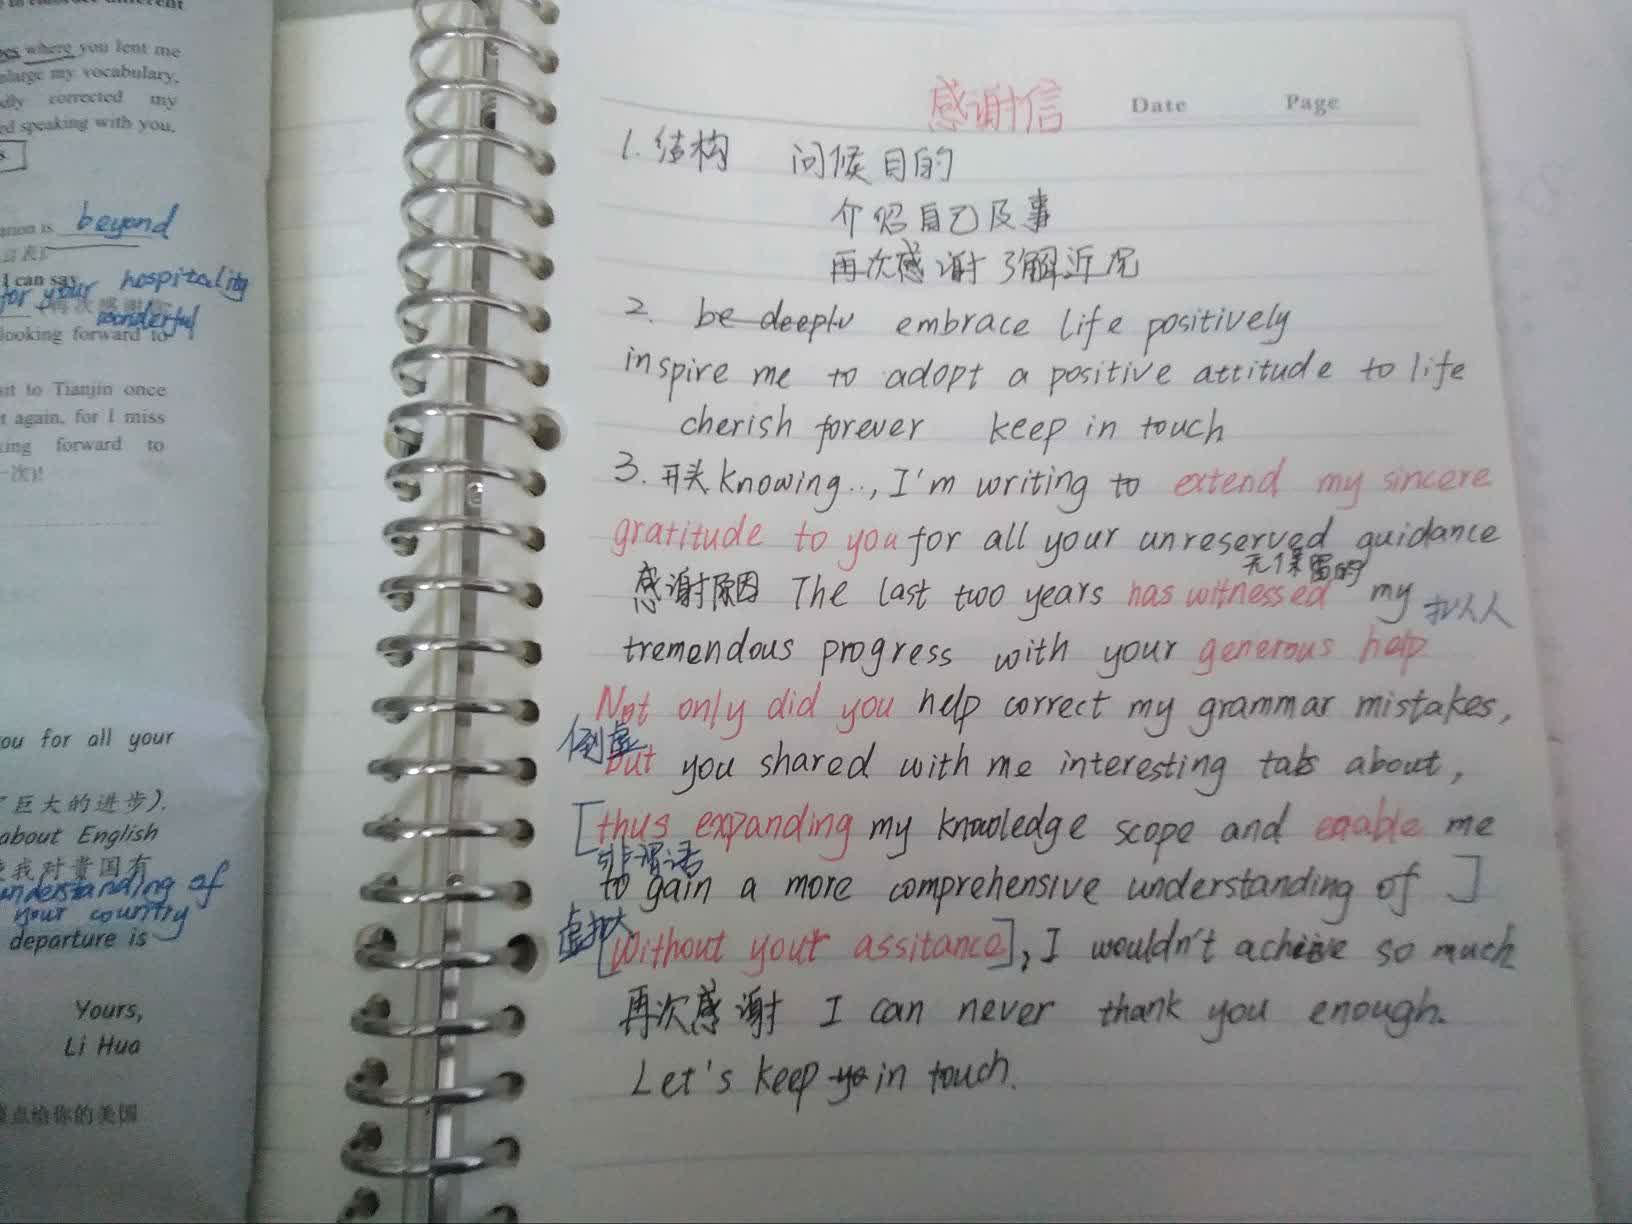 where you lent me
my vocabulary,
corrected my
speaking with you,
beyond
I can say
for your hospitality
wonderful
looking forward to
to Tianjin once
again, for I miss
forward to
you for all your
巨大的进步).
about English
我对贵国有
understanding of
your country
departure is
Yours,
Li Hua
点给你的美国
感谢信 Date Page
1.结构 问候目的
介绍自己及事
再次感谢 了解近况
2. be deeply embrace life positively
inspire me to adopt a positive attitude to life
cherish forever keep in touch
3.开头 knowing..., I'm writing to extend my sincere
gratitude to you for all your unreserved guidance
无保留的
感谢原因 The last two years has witnessed my 拟人
tremendous progress with your generous help
Not only did you help correct my grammar mistakes,
倒虚
but you shared with me interesting tabs about,
[thus expanding my knowledge scope and enable me
非谓语
to gain a more comprehensive understanding of ]
虚拟
[Without your assitance], I wouldn't achieve so much
再次感谢 I can never thank you enough.
Let's keep yo in touch.